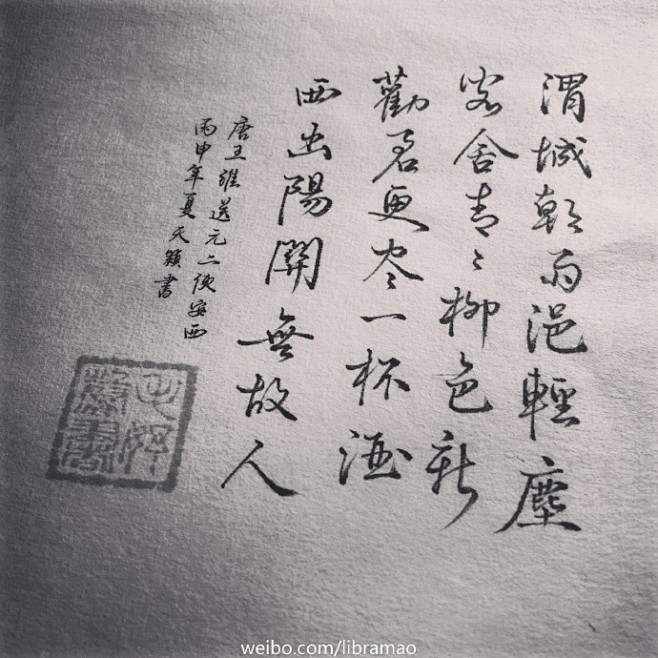 渭城朝雨浥輕塵
客舍青々柳色新
勸君更尽一杯酒
西出陽關無故人
唐王維送元二使安西
丙申年夏天籟書
weibo.com/libramao